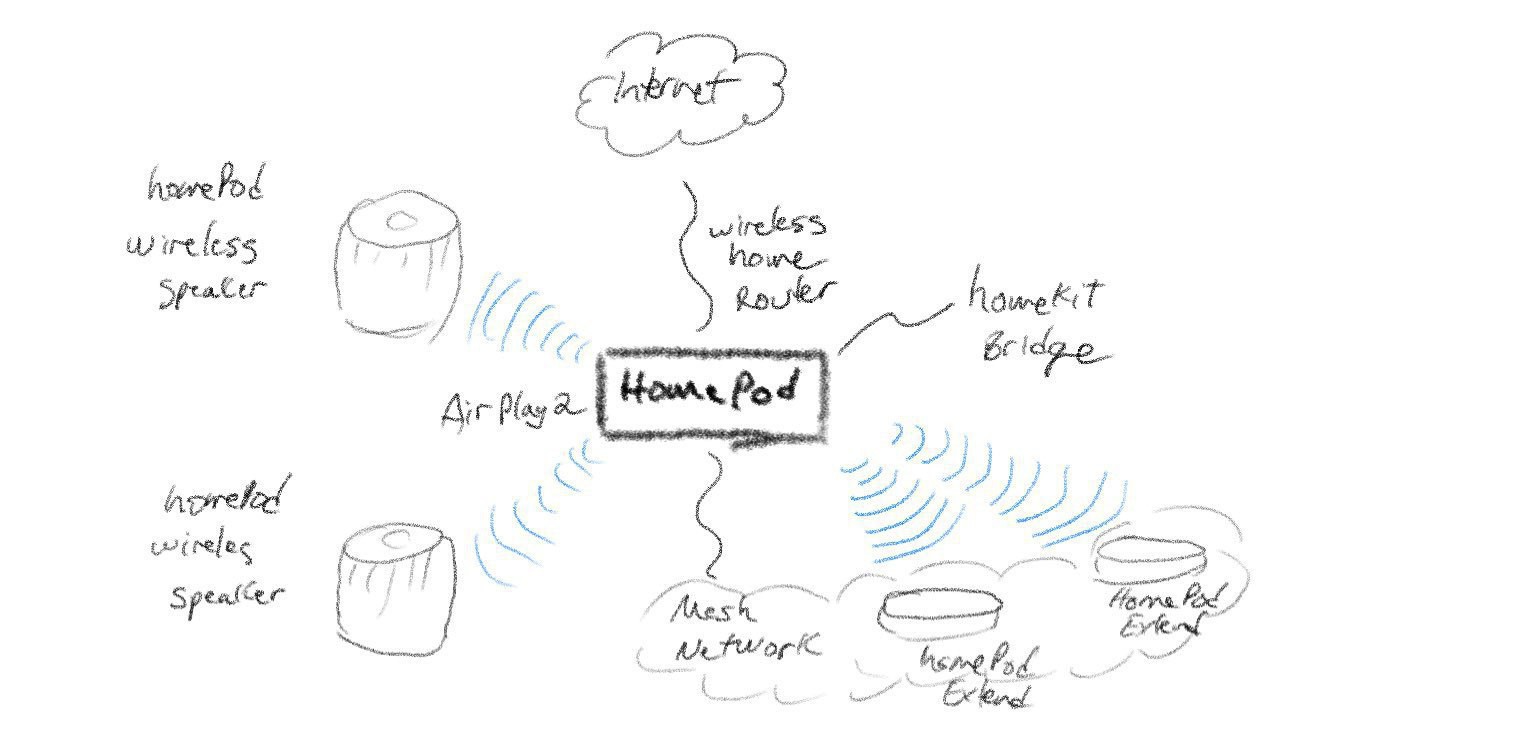 Internet
homePod
wireless
speaker
wireless
home
Router
homekit
Bridge
HomePod
AirPlay2
homePod
wireles
speaker
Mesh
Network
homePod
Extend
HomePod
Extend